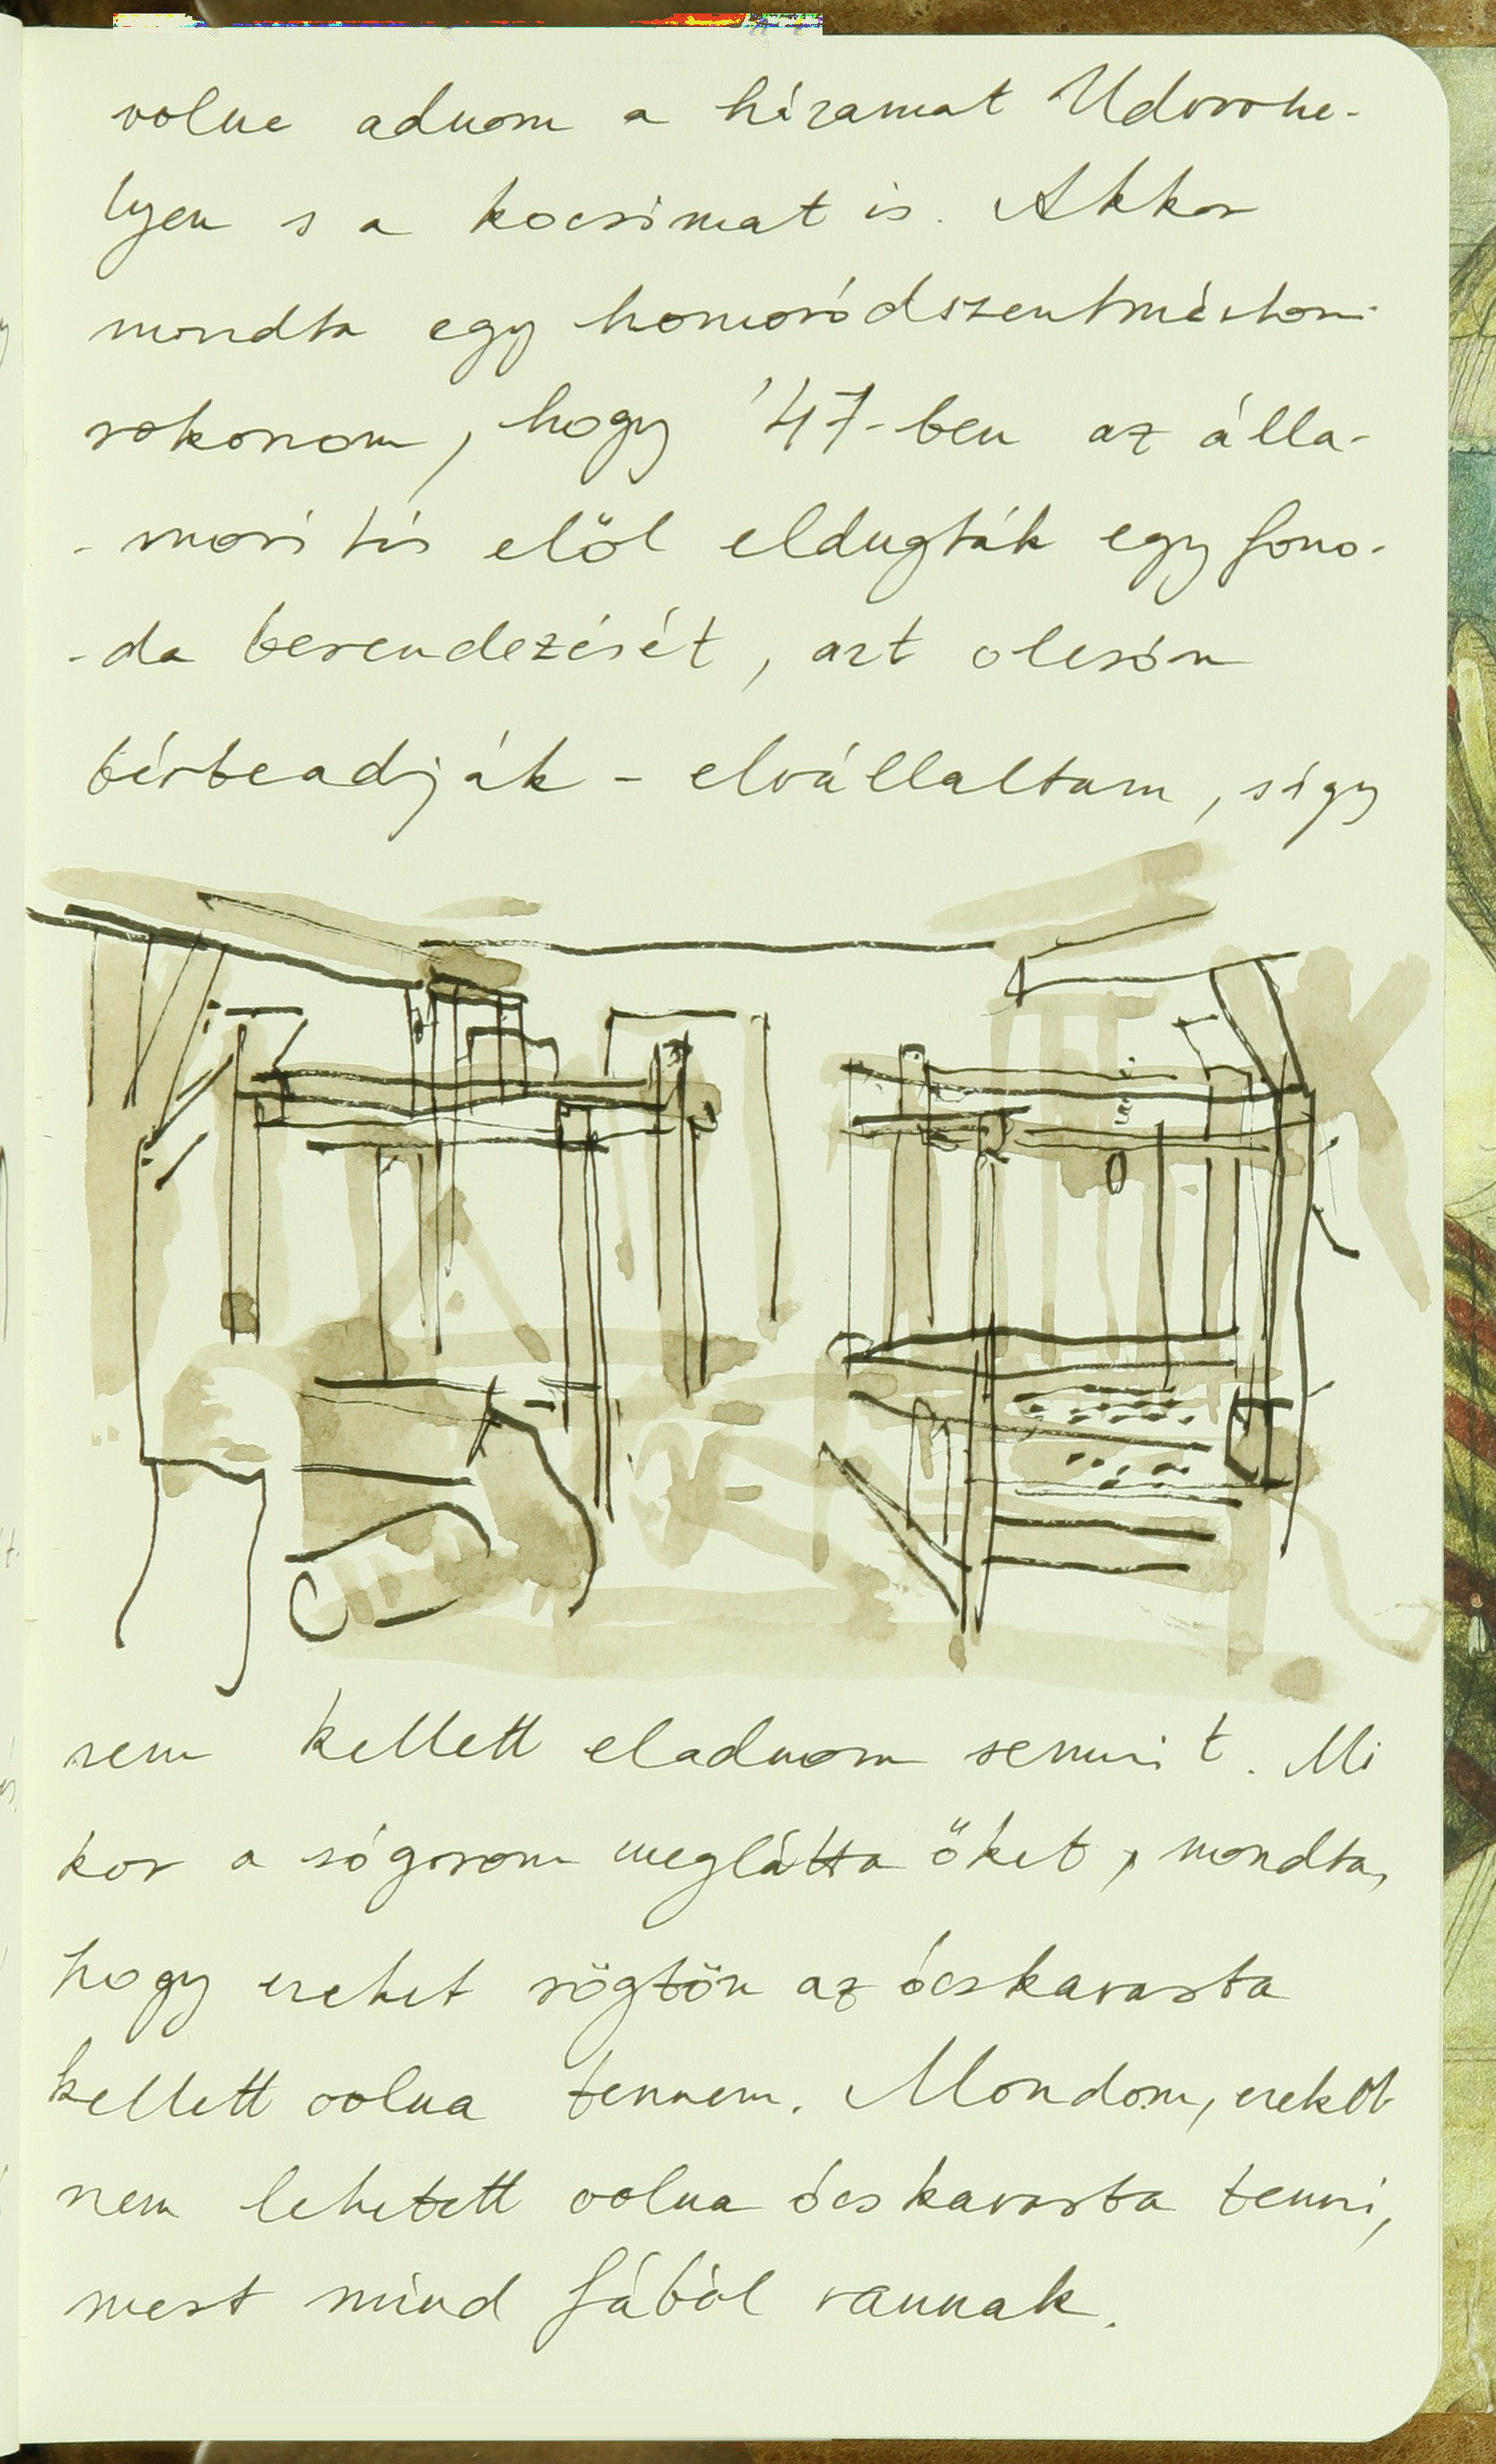 volna adnom a házamat Udvarhe-
lyen s a kocsimat is. Akkor
mondta egy homoródszentmártoni
rokonom, hogy '47-ben az álla-
-mosítás elől eldugták egy fono-
-da berendezését, azt olcsón
bérbeadják - elvállaltam, s így
nem kellett eladnom semmit. Mi
kor a sógorom meglátta őket, mondta,
hogy ezeket rögtön az ócskavasba
kellett volna tennem. Mondom, ezeket
nem lehetett volna ócskavasba tenni,
mert mind fából vannak.